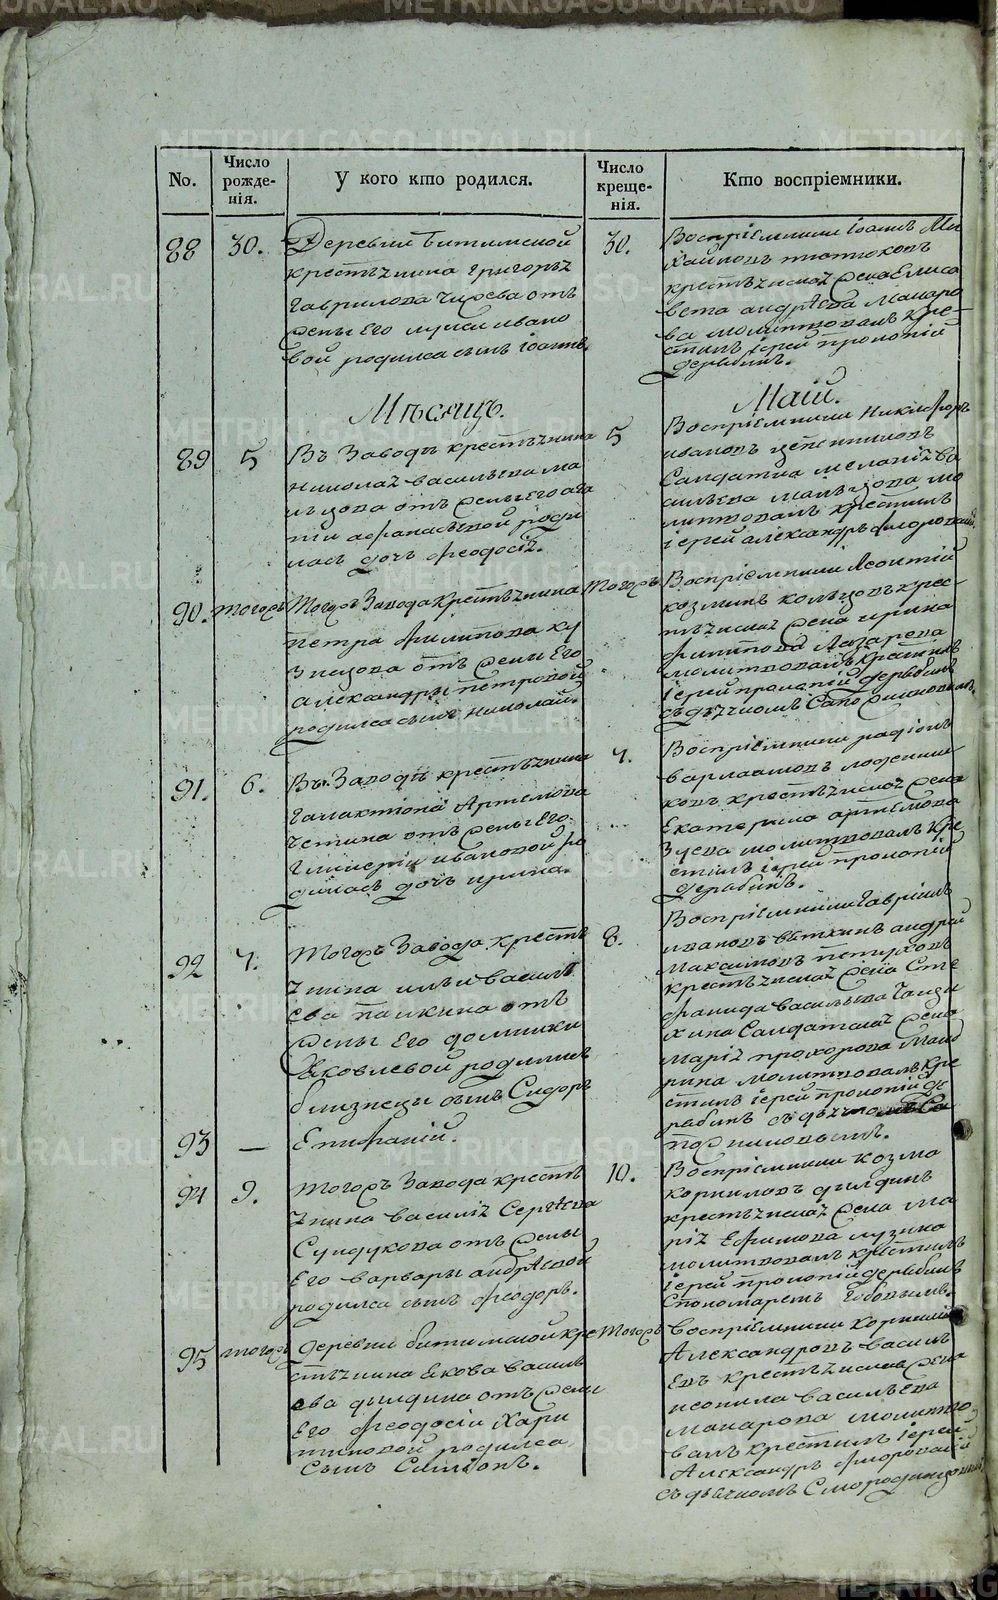 No.
Число рожде-нія.
У кого кто родился.
Число креще-нія.
Кто воспріемники.
88
30.
Деревни Битимской
крестьянина григорья
гаврилова Чирева отъ
жены Его ивано
вой родился сынъ іоаннъ.
30.
Воспріемники іоаннъ Ми
хайловъ
крестьянская жена Елиса
вета андрѣева Макаро
ва молитвовалъ кре-
стилъ іерей прокопій
дерябинъ.
Мѣсяцъ.
Маій.
89
5
Въ Заводѣ крестьянина
николая васильева ма
лѣцова отъ жены его ага
піи афанасьевой роди
лась дочь феодосія.
5
Воспріемники никифоръ
ивановъ
Салдатка меланія ва
сильева мо
литвовалъ крестилъ
іерей александръ флоровскій
90.
тогожъ
Тогожъ Завода Крестьянина
петра филипова ку
знецова отъ жены Его
александры петровой
родился сынъ николай.
тогожъ
Воспріемники леонтій
козминъ кольцовъ крес-
тьянская жена ирина
филипова Лазарева
молитвовалъ крестилъ
іерей прокопій дерябинъ
съ дьячкомъ Сапожниковымъ
91.
6.
Въ Заводѣ крестьянина
галактіона Артемова
отъ жены Его
Гликеріи ивановой ро
дилась дочь ирина.
7.
Воспріемники радіонъ
варлаамовъ
ковъ крестьянская жена
Екатерина артемова
Зуева молитвовалъ кре
стилъ іерей прокопій
дерябинъ.
92
7.
Тогожъ Завода кресть
янина ильи василь
ева палкина отъ
жены Его домники
Яковлевой родились
близнецы сынъ Сидоръ
93
—
Епифаній.
8.
Воспріемники гавріилъ
ивановъ вяткинъ андрей
Максимовъ петуховъ
крестьянская жена Сте
фанида васильева
Салдатская жена
марія прохорова
молитвовалъ кре
стилъ іерей прокопій де
рябинъ съ дьячкомъ Са
пожниковымъ.
94
9.
Тогожъ Завода кресть
янина василія Сергѣева
Сундукова отъ жены
Его варвары андрѣевой
родился сынъ феодоръ.
10.
Воспріемники козма
корниловъ дылдинъ
крестьянская жена ма
рія Ефимова лузина
молитвовалъ крестилъ
іерей прокопій дерябинъ
Спономаремъ
95
тогожъ
Деревни битимской кре
стьянина якова василь
ева дылдина отъ жены
Его феодосіи Хари
тоновой родился
Сынъ Симіонъ.
тогожъ
Воспріемники Корнилій
Александровъ василь
евъ крестьянская жена
неонила васильева
макарова молитво
валъ крестилъ іерей
Александръ флоровскій
съ дьячкомъ Смородинцовымъ
METRIKI.GASO-URAL.RU